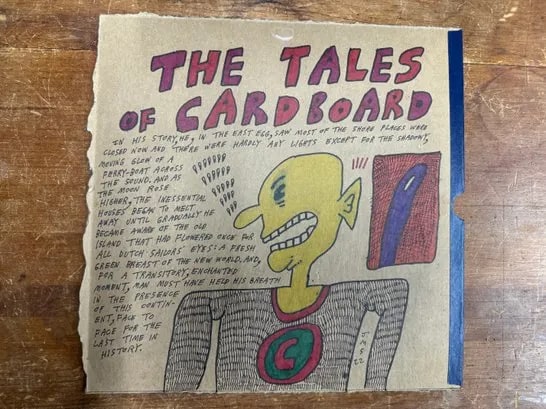 THE TALES
OF CARDBOARD
IN HIS STORY, HE, IN THE EAST EGG, SAW MOST OF THE SHORE PLACES WERE
CLOSED NOW AND THERE WERE HARDLY ANY LIGHTS EXCEPT FOR THE SHADOWY,
MOVING GLOW OF A
FERRY-BOAT ACROSS
THE SOUND. AND AS
THE MOON ROSE
HIGHER, THE INESSENTIAL
HOUSES BEGAN TO MELT
AWAY UNTIL GRADUALLY HE
BECAME AWARE OF THE OLD
ISLAND THAT HAD FLOWERED ONCE FOR
ALL DUTCH SAILORS' EYES: A FRESH
GREEN BREAST OF THE NEW WORLD. AND,
FOR A TRANSITORY, ENCHANTED
MOMENT, MAN MUST HAVE HELD HIS BREATH
IN THE PRESENCE
OF THIS CONTIN-
ENT, FACE TO
FACE FOR THE
LAST TIME IN
HISTORY.
C